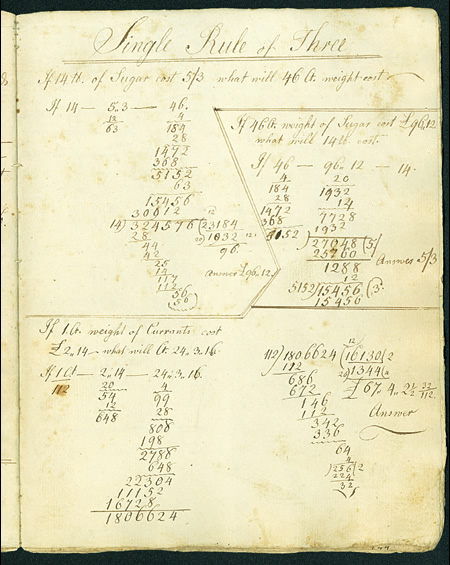 Single Rule of Three
If 14 lt. of Sugar cost 5/3 what will 46 Ct. weight cost
If 14 — 5.3 — 46.
12 4
63 184
28
1472
368
5152
63
15456
30912
14) 324576 (23184
28 1932 12.
44 96.
42
25
14
117
112
56
56
Answer £96.12.
If 46 Ct. weight of Sugar cost £96.12
what will 14 lt. cost.
If 46 — 96.12 — 14.
4 20
184 1932
28 14
1472 7728
368 1932
5152) 27048 (5/
25760
1288
12
5152) 15456 (3.
15456
Answer 5/3
If 1 Ct. weight of Currants cost
£2.14 — what will Ct. 24.3.16.
If 1 Ct — 2.14 — 24.3.16.
112 20 4
54 99
12 28
648 808
198
2788
648
22304
11152
16728
1806624
112) 1806624 (16130 (2
112 1344 (4
686 £67.4.2
672
146
112
342
336
64
4
256 (2
224
32
32
112
Answer